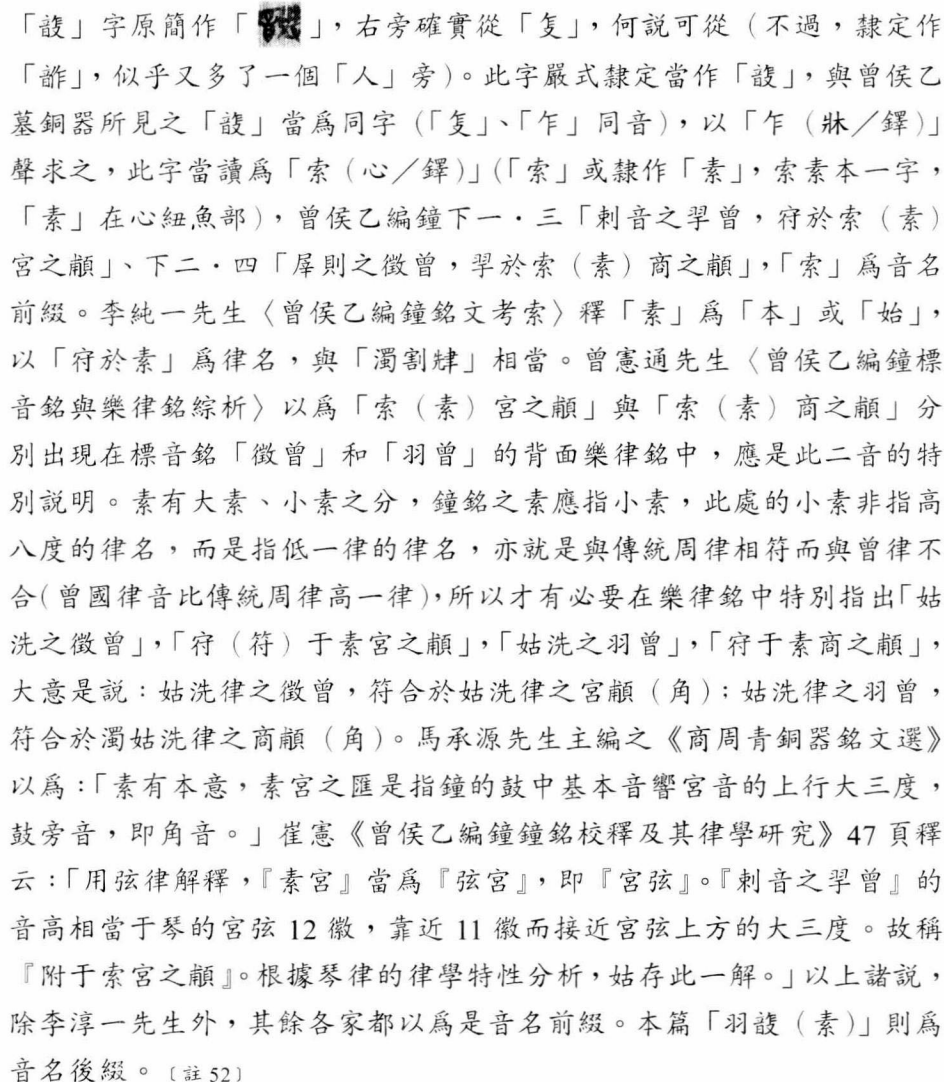 「」字原簡作「」，右旁確實從「」，何說可從（不過，隸定作
「」，似乎又多了一個「人」旁）。此字嚴式隸定當作「」，與曾侯乙
墓銅器所見之「」當爲同字（「」、「乍」同音），以「乍（牀／鐸）」
聲求之，此字當讀爲「索（心／鐸）」（「索」或隸作「素」，索素本一字，
「素」在心紐魚部），曾侯乙編鐘下一．三「剌音之曾，於索（素）
宮之」、下二．四「屖則之徵曾，於索（素）商之」，「索」爲音名
前綴。李純一先生〈曾侯乙編鐘銘文考索〉釋「素」爲「本」或「始」，
以「於素」爲律名，與「濁割」相當。曾憲通先生〈曾侯乙編鐘標
音銘與樂律銘綜析〉以爲「索（素）宮之」與「索（素）商之」分
別出現在標音銘「徵曾」和「羽曾」的背面樂律銘中，應是此二音的特
別說明。素有大素、小素之分，鐘銘之素應指小素，此處的小素非指高
八度的律名，而是指低一律的律名，亦就是與傳統周律相符而與曾律不
合（曾國律音比傳統周律高一律），所以才有必要在樂律銘中特別指出「姑
洗之徵曾」，「（符）于素宮之」，「姑洗之羽曾」，「于素商之」，
大意是說：姑洗律之徵曾，符合於姑洗律之宮（角）；姑洗律之羽曾，
符合於濁姑洗律之商（角）。馬承源先生主編之《商周青銅器銘文選》
以爲：「素有本意，素宮之匯是指鐘的鼓中基本音響宮音的上行大三度，
鼓旁音，即角音。」崔憲《曾侯乙編鐘鐘銘校釋及其律學研究》47 頁釋
云：「用弦律解釋，『素宮』當爲『弦宮』，即『宮弦』。『剌音之曾』的
音高相當于琴的宮弦 12 徽，靠近 11 徽而接近宮弦上方的大三度。故稱
『附于索宮之』。根據琴律的律學特性分析，姑存此一解。」以上諸說，
除李淳一先生外，其餘各家都以爲是音名前綴。本篇「羽（素）」則爲
音名後綴。〔註 52〕